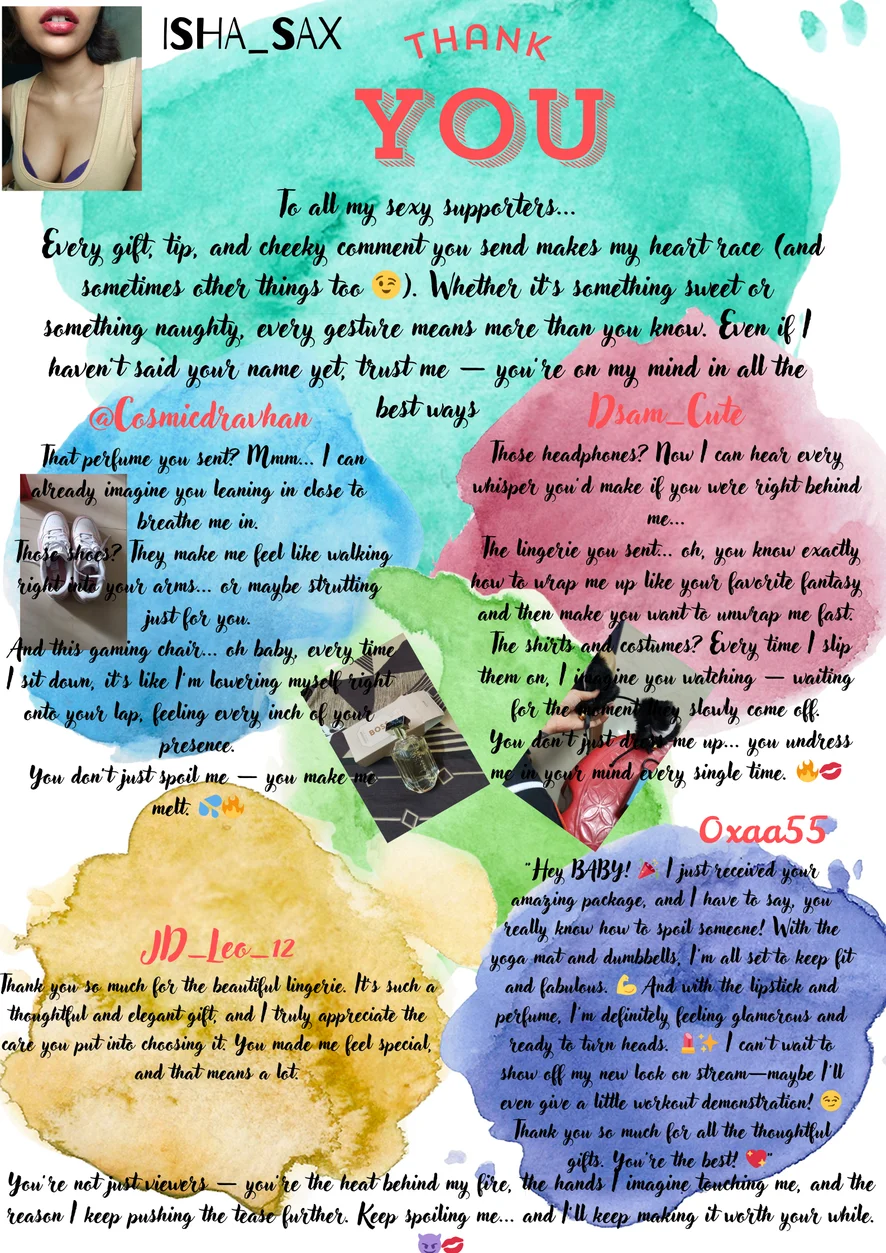 ISHA_SAX
THANK
YOU
To all my sexy supporters...
Every gift, tip, and cheeky comment you send makes my heart race (and
sometimes other things too 😉). Whether it's something sweet or
something naughty, every gesture means more than you know. Even if I
haven't said your name yet, trust me — you're on my mind in all the
best ways
@Cosmicdravhan
That perfume you sent? Mmm... I can
already imagine you leaning in close to
breathe me in.
Those shoes? They make me feel like walking
right into your arms... or maybe strutting
just for you.
And this gaming chair... oh baby, every time
I sit down, it's like I'm lowering myself right
onto your lap, feeling every inch of your
presence.
You don't just spoil me — you make me
melt. 💦🔥
Dsam_Cute
Those headphones? Now I can hear every
whisper you'd make if you were right behind
me...
The lingerie you sent... oh, you know exactly
how to wrap me up like your favorite fantasy
and then make you want to unwrap me fast.
The shirts and costumes? Every time I slip
them on, I imagine you watching — waiting
for the moment they slowly come off.
You don't just dress me up... you undress
me in your mind every single time. 🔥💋
BOSS
JD_Leo_12
Thank you so much for the beautiful lingerie. It's such a
thoughtful and elegant gift, and I truly appreciate the
care you put into choosing it. You made me feel special,
and that means a lot.
Oxaa55
"Hey BABY! 🎉 I just received your
amazing package, and I have to say, you
really know how to spoil someone! With the
yoga mat and dumbbells, I'm all set to keep fit
and fabulous. 💪 And with the lipstick and
perfume, I'm definitely feeling glamorous and
ready to turn heads. 💄✨ I can't wait to
show off my new look on stream—maybe I'll
even give a little workout demonstration! 😏
Thank you so much for all the thoughtful
gifts. You're the best! 💖"
You're not just viewers — you're the heat behind my fire, the hands I imagine touching me, and the
reason I keep pushing the tease further. Keep spoiling me... and I'll keep making it worth your while.
😈💋